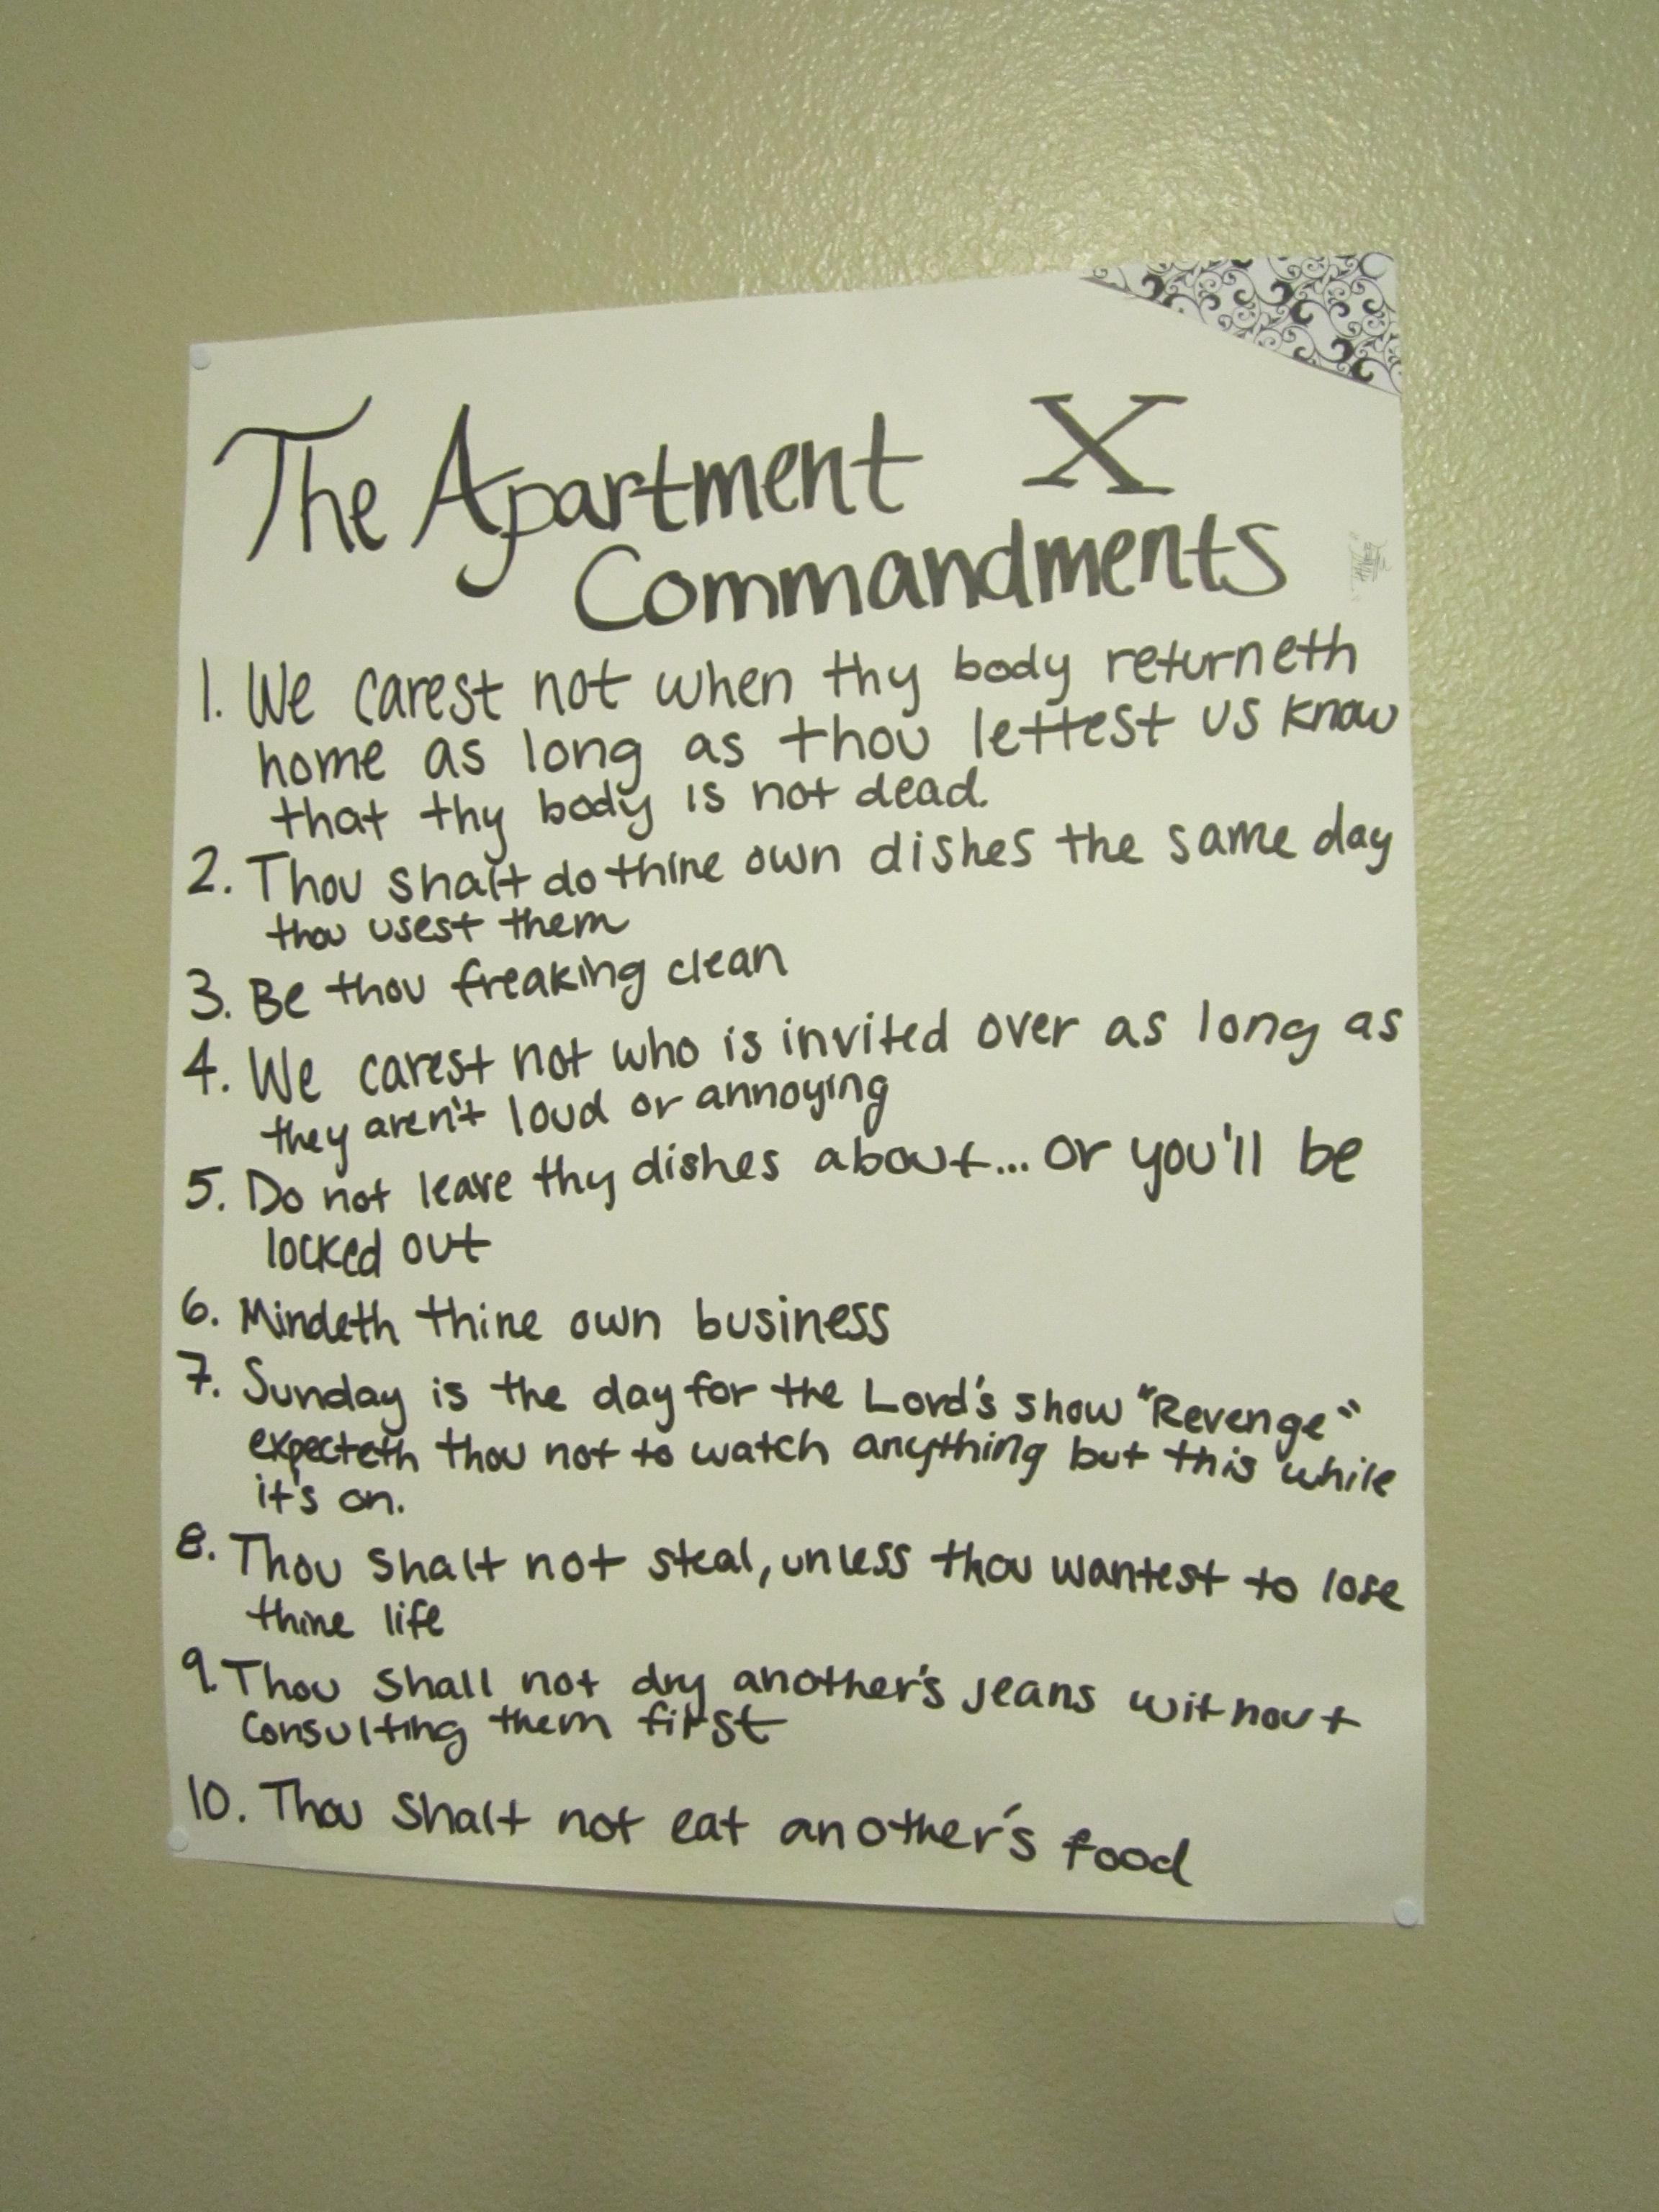 The Apartment X
Commandments
1. We carest not when thy body returneth
home as long as thou lettest us know
that thy body is not dead.
2. Thou shalt do thine own dishes the same day
thou usest them
3. Be thou freaking clean
4. We carest not who is invited over as long as
they aren't loud or annoying
5. Do not leave thy dishes about... or you'll be
locked out
6. Mindeth thine own business
7. Sunday is the day for the Lord's show "Revenge"
expecteth thou not to watch anything but this while
it's on.
8. Thou shalt not steal, unless thou wantest to lose
thine life
9. Thou shall not dry another's jeans without
consulting them first
10. Thou shalt not eat another's food